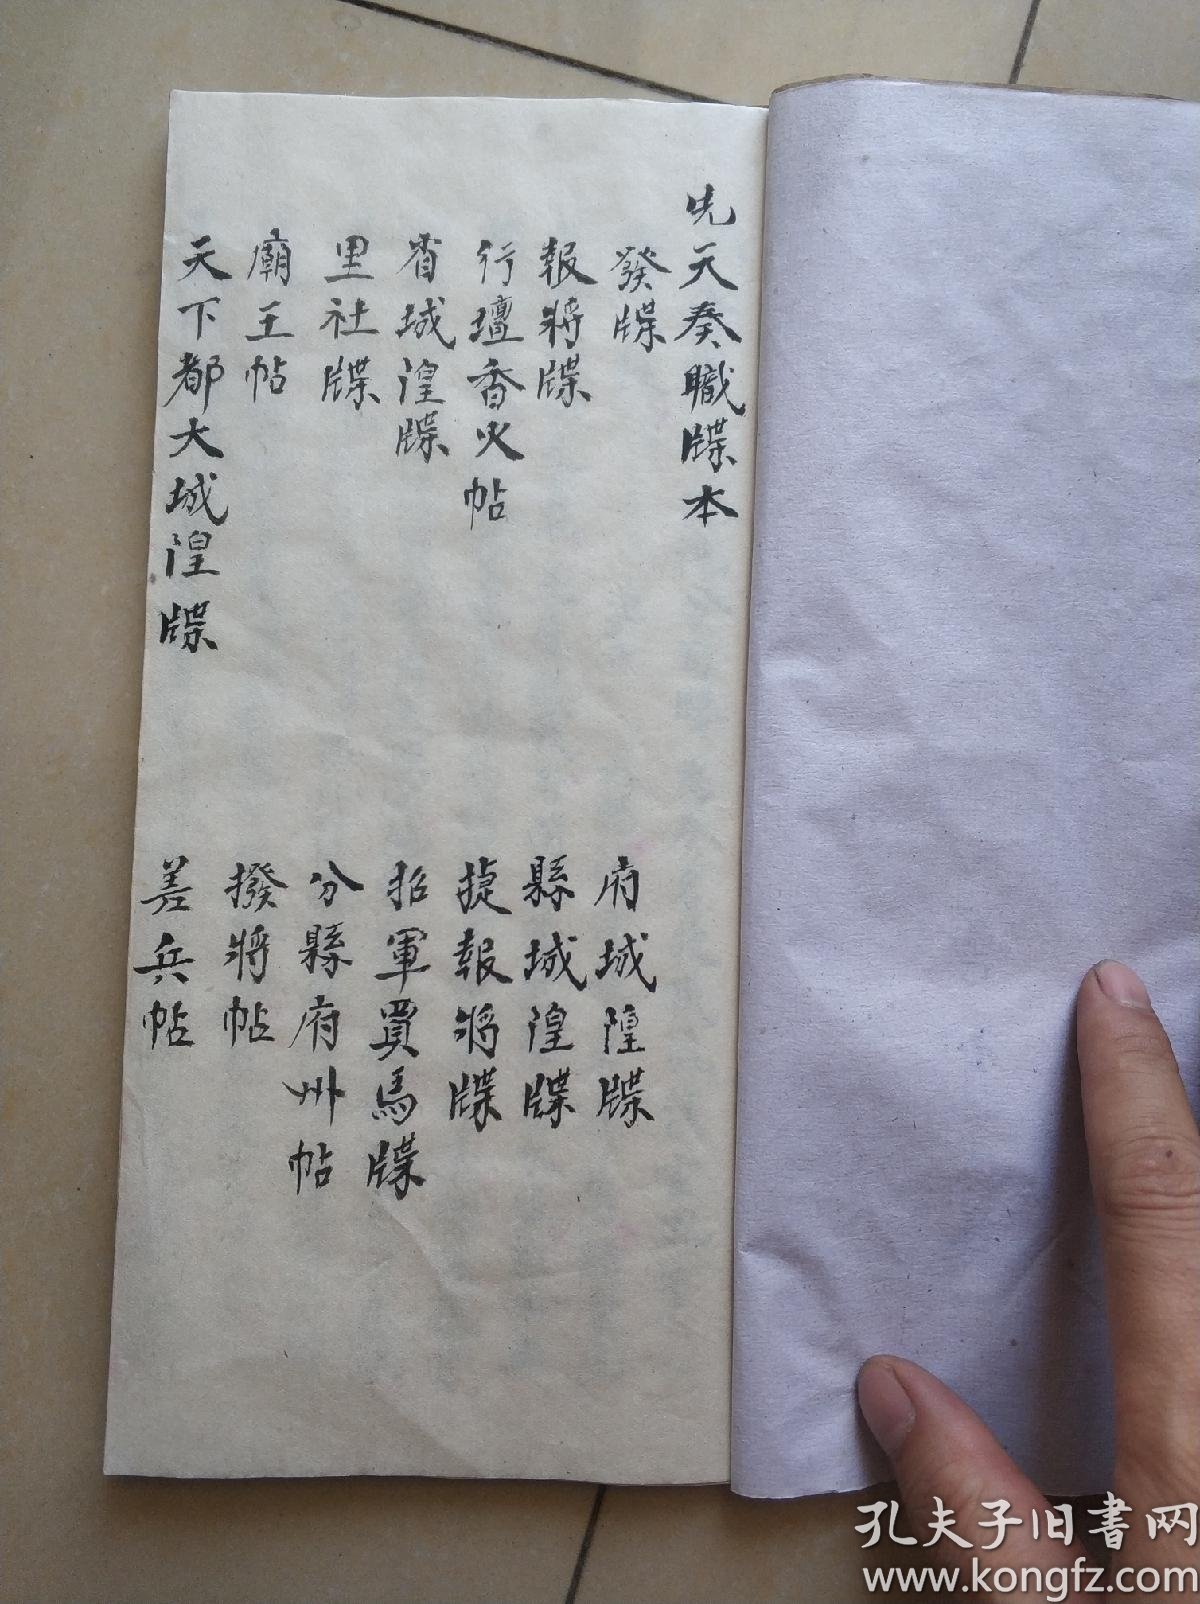 先天奏職牒本
發牒
報將牒
行壇香火帖
省城隍牒
里社牒
廟王帖
天下都大城隍牒
府城隍牒
縣城隍牒
捷報將牒
招軍買馬牒
分縣府州帖
撥將帖
差兵帖
孔夫子旧书网
www.kongfz.com